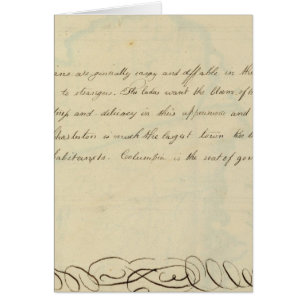 ans are generally easy and affable in the
to strangers. The Ladies want the bloom of
and delicacy in their appearance and
Charleston is much the largest town
habitants. Columbia is the seat of gov